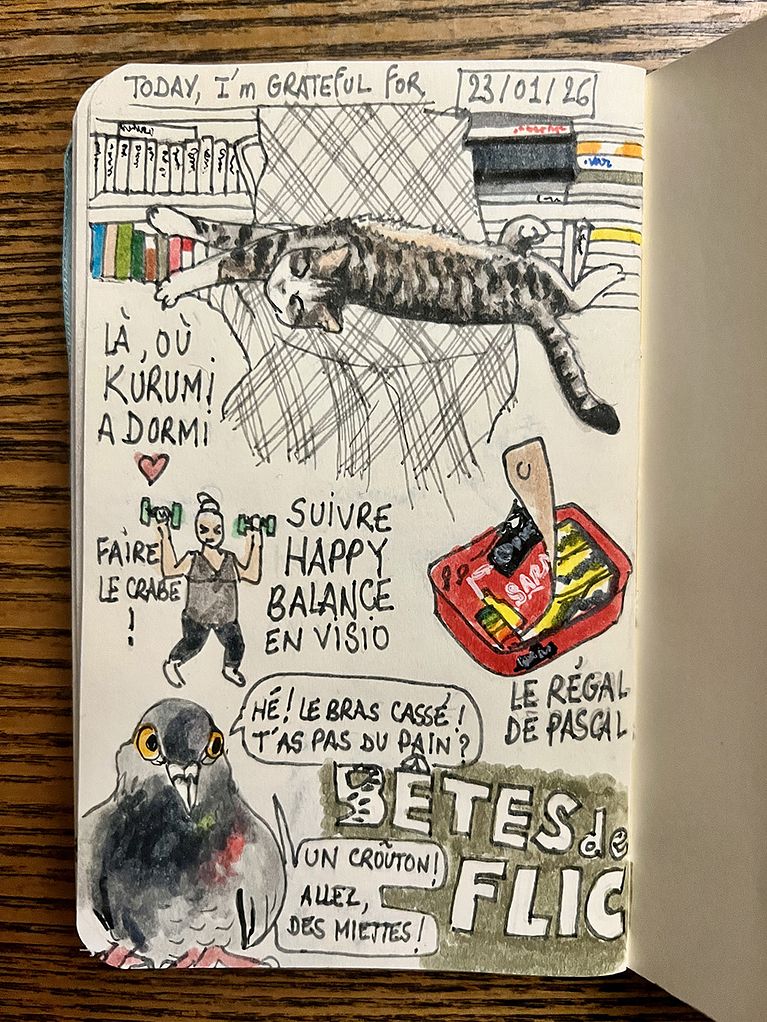 TODAY, I'm GRATEFUL FOR
23/01/26
LÀ, OÙ
KURUMI
A DORMI
FAIRE
LE CRABE
!
SUIVRE
HAPPY
BALANCE
EN VISIO
LE RÉGAL
DE PASCAL
HÉ! LE BRAS CASSÉ!
T'AS PAS DU PAIN?
BÊTES de
FLIC
UN CROÛTON!
ALLEZ,
DES MIETTES!